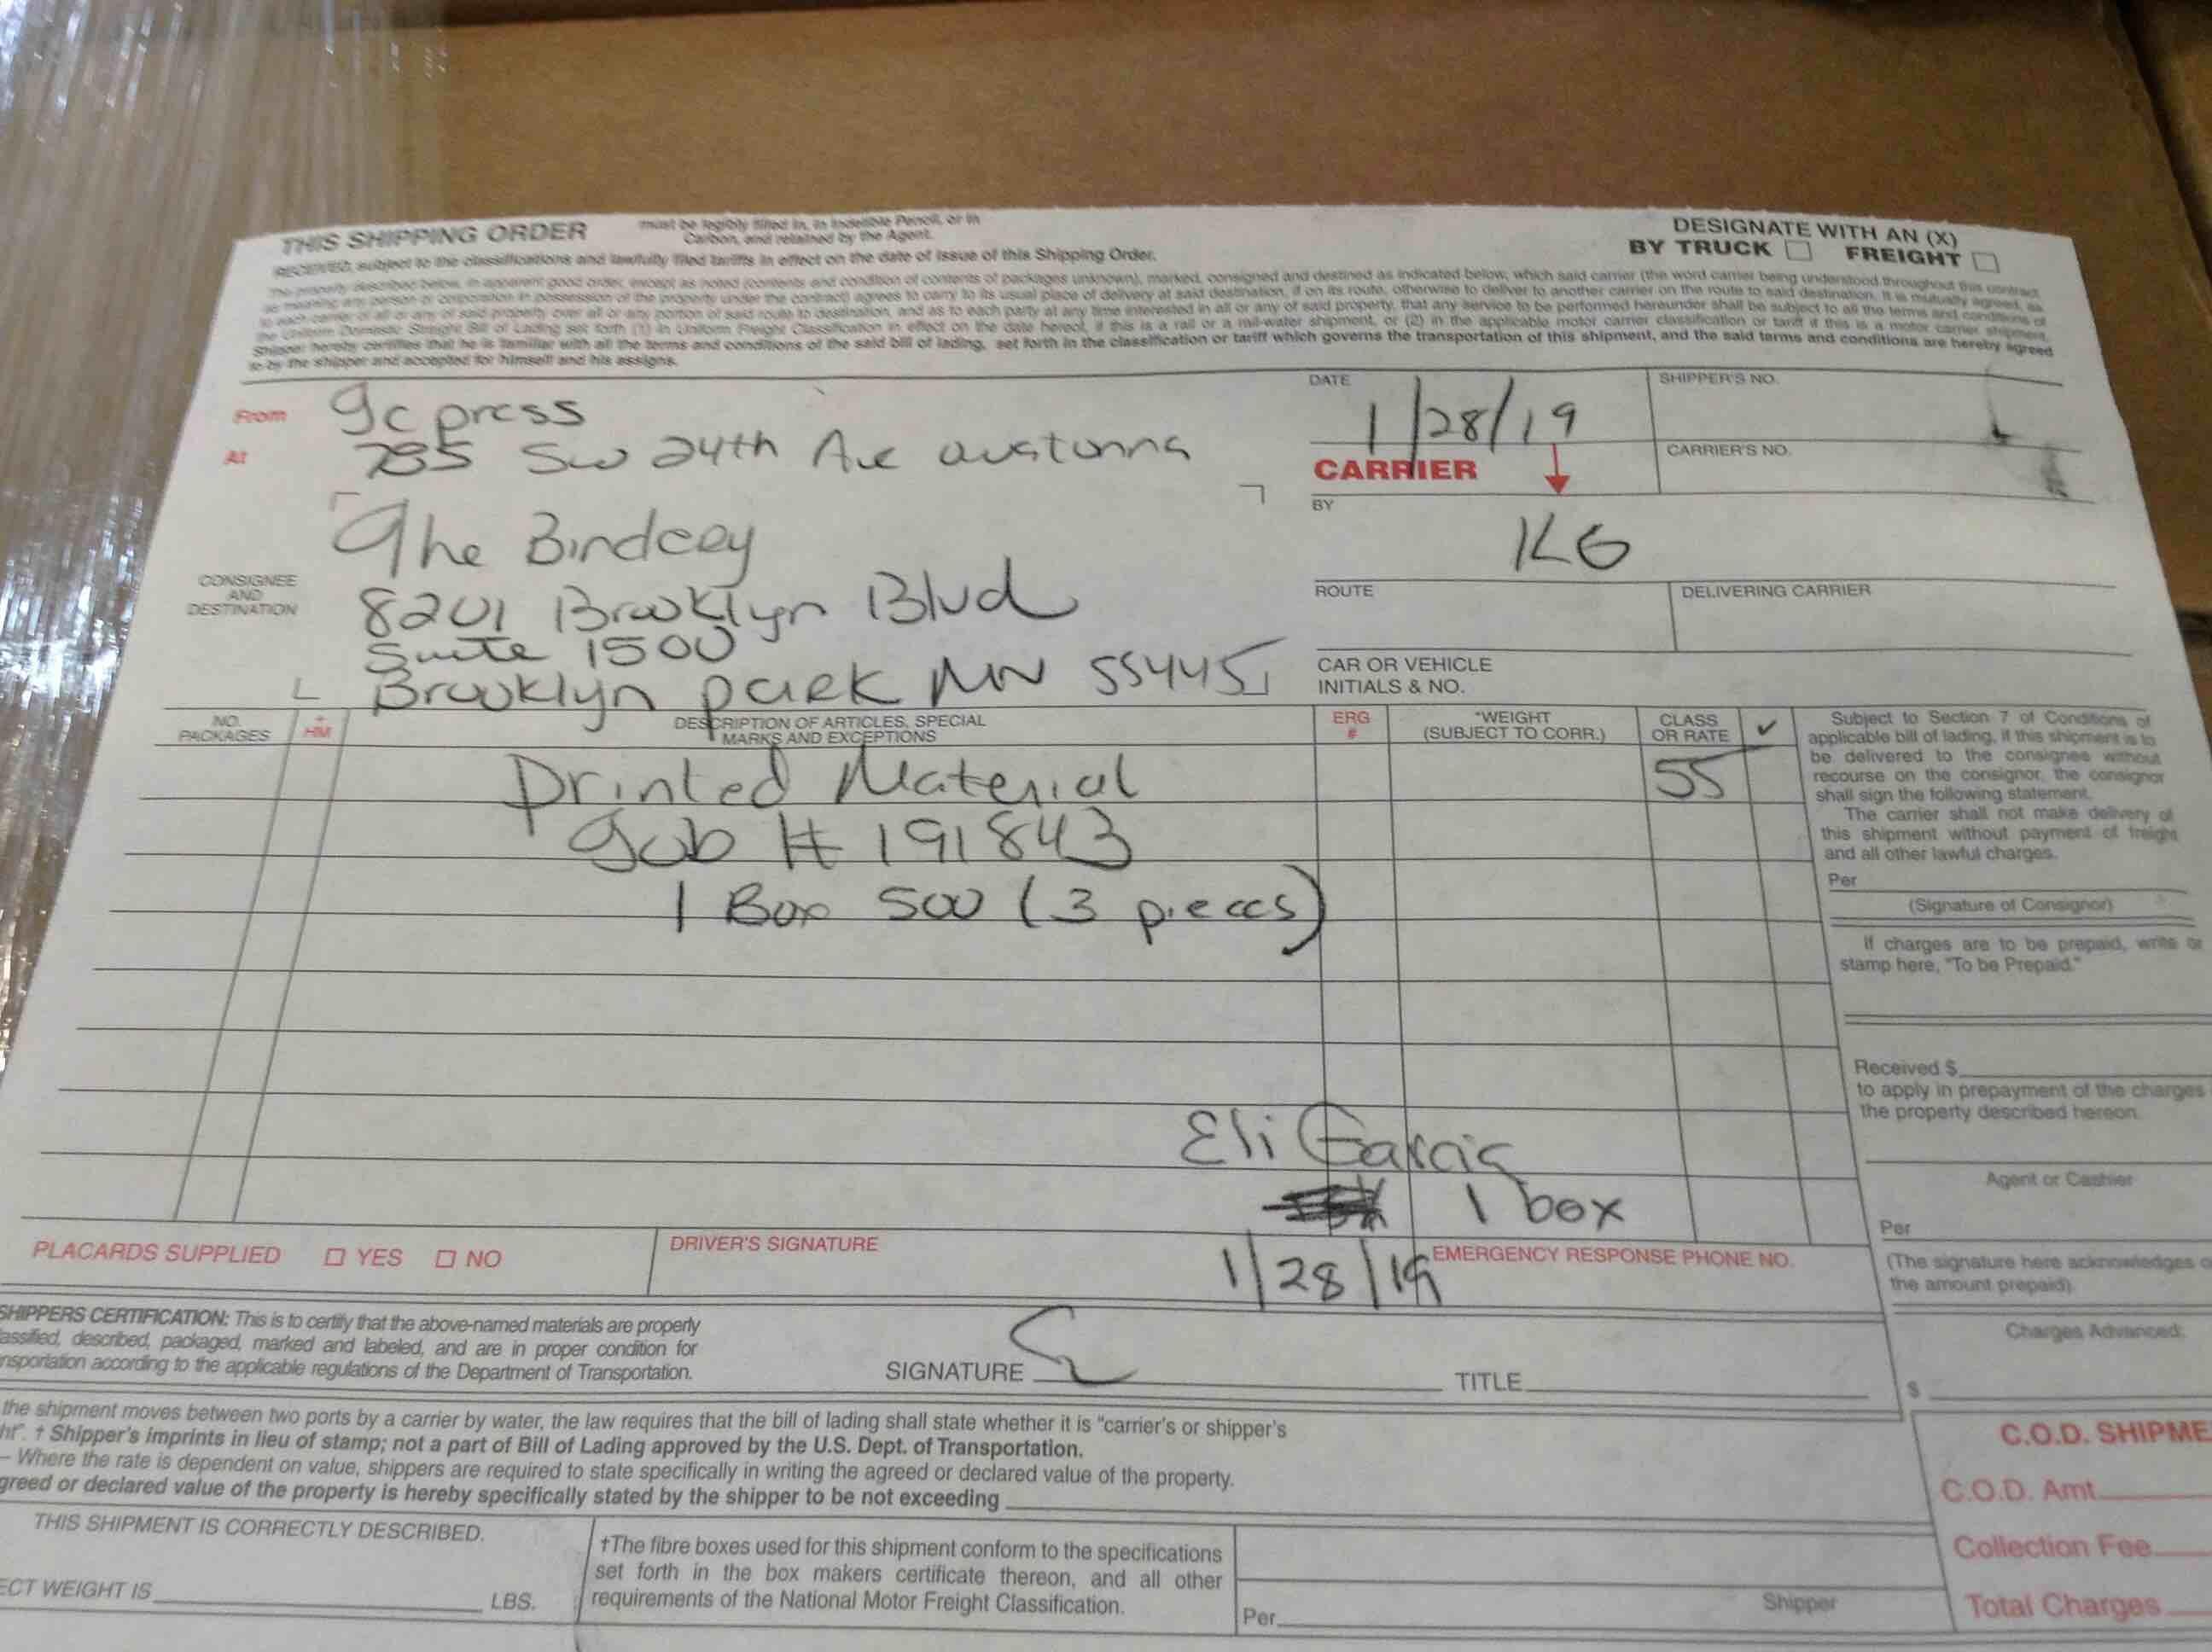 THIS SHIPPING ORDER
must be legibly filled in, in Indelible Pencil, or in
Carbon, and retained by the Agent.
DESIGNATE WITH AN (X)
BY TRUCK ☐ FREIGHT ☐
RECEIVED, subject to the classifications and lawfully filed tariffs in effect on the date of issue of this Shipping Order.
The property described below, in apparent good order, except as noted (contents and condition of contents of packages unknown), marked, consigned and destined as indicated below, which said carrier (the word carrier being understood throughout this contract
as meaning any person or corporation in possession of the property under the contract) agrees to carry to its usual place of delivery at said destination, if on its route, otherwise to deliver to another carrier on the route to said destination. It is mutually agreed, as
to each carrier of all or any of said property over all or any portion of said route to destination, and as to each party at any time interested in all or any of said property, that any service to be performed hereunder shall be subject to all the terms and conditions of
the Uniform Domestic Straight Bill of Lading set forth (1) in Uniform Freight Classification in effect on the date hereof, if this is a rail or a rail-water shipment, or (2) in the applicable motor carrier classification or tariff if this is a motor carrier shipment.
Shipper hereby certifies that he is familiar with all the terms and conditions of the said bill of lading, set forth in the classification or tariff which governs the transportation of this shipment, and the said terms and conditions are hereby agreed
to by the shipper and accepted for himself and his assigns.
From gc press
At 785 Sw 24th Ave
DATE 1/28/19
SHIPPER'S NO.
CARRIER
CARRIER'S NO.
BY KG
CONSIGNEE
AND
DESTINATION
The Bindeey
8201 Brooklyn Blvd
Suite 1500
Brooklyn park MN 55445
ROUTE
DELIVERING CARRIER
CAR OR VEHICLE
INITIALS & NO.
NO.
PACKAGES
+
HM
DESCRIPTION OF ARTICLES, SPECIAL
MARKS AND EXCEPTIONS
ERG
#
*WEIGHT
(SUBJECT TO CORR.)
CLASS
OR RATE
✓
Printed Material
55
Job # 191843
1 Box 500 (3 pieces)
Eli Garcia
1 box
1/28/19
Subject to Section 7 of Conditions of
applicable bill of lading, if this shipment is to
be delivered to the consignee without
recourse on the consignor, the consignor
shall sign the following statement.
The carrier shall not make delivery of
this shipment without payment of freight
and all other lawful charges.
Per
(Signature of Consignor)
If charges are to be prepaid, write or
stamp here, "To be Prepaid."
Received $
to apply in prepayment of the charges
the property described hereon.
Agent or Cashier
Per
(The signature here acknowledges
the amount prepaid).
Charges Advanced:
$
PLACARDS SUPPLIED ☐ YES ☐ NO
DRIVER'S SIGNATURE
EMERGENCY RESPONSE PHONE NO.
SHIPPERS CERTIFICATION: This is to certify that the above-named materials are properly
assified, described, packaged, marked and labeled, and are in proper condition for
nsportation according to the applicable regulations of the Department of Transportation.
SIGNATURE
TITLE
the shipment moves between two ports by a carrier by water, the law requires that the bill of lading shall state whether it is "carrier's or shipper's
ht". † Shipper's imprints in lieu of stamp; not a part of Bill of Lading approved by the U.S. Dept. of Transportation.
– Where the rate is dependent on value, shippers are required to state specifically in writing the agreed or declared value of the property.
greed or declared value of the property is hereby specifically stated by the shipper to be not exceeding
THIS SHIPMENT IS CORRECTLY DESCRIBED.
ECT WEIGHT IS LBS.
†The fibre boxes used for this shipment conform to the specifications
set forth in the box makers certificate thereon, and all other
requirements of the National Motor Freight Classification.
Shipper
Per
C.O.D. SHIPME
C.O.D. Amt.
Collection Fee
Total Charges